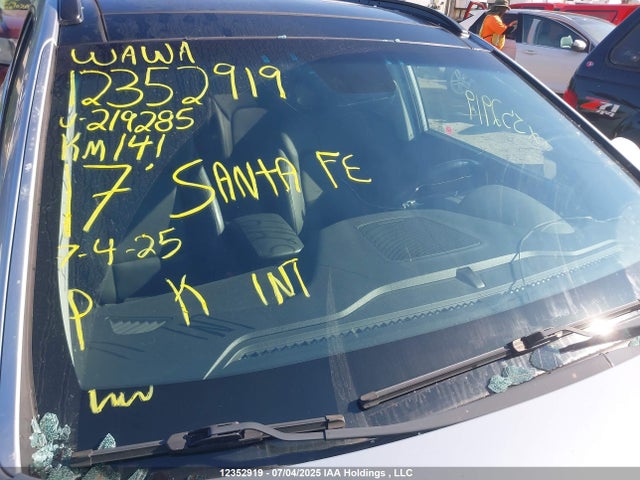 WAWA
12352919
V-219285
KM 141
17' SANTA FE
7-4-25
P K INT
12352919 - 07/04/2025 IAA Holdings , LLC